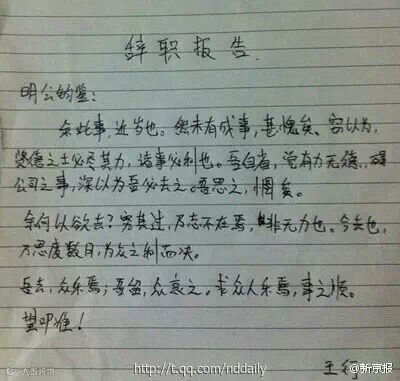 辞职报告
明公钧鉴:
余此事,近岁也。然未有成事,甚愧矣。窃以为,
贤德之士必尽其力,诸事必利也。吾自省,觉有力无德,碍
公司之事,深以为吾必去之。吾思之,惆矣。
余何以欲去?究其过,乃志不在焉,非无力也。今去也,
乃思度数月,为众之利而决。
吾去,众乐焉;吾留,众哀之。求众人乐焉,事之顺。
望叩准!
王行
http://t.qq.com/nddaily
@新京报